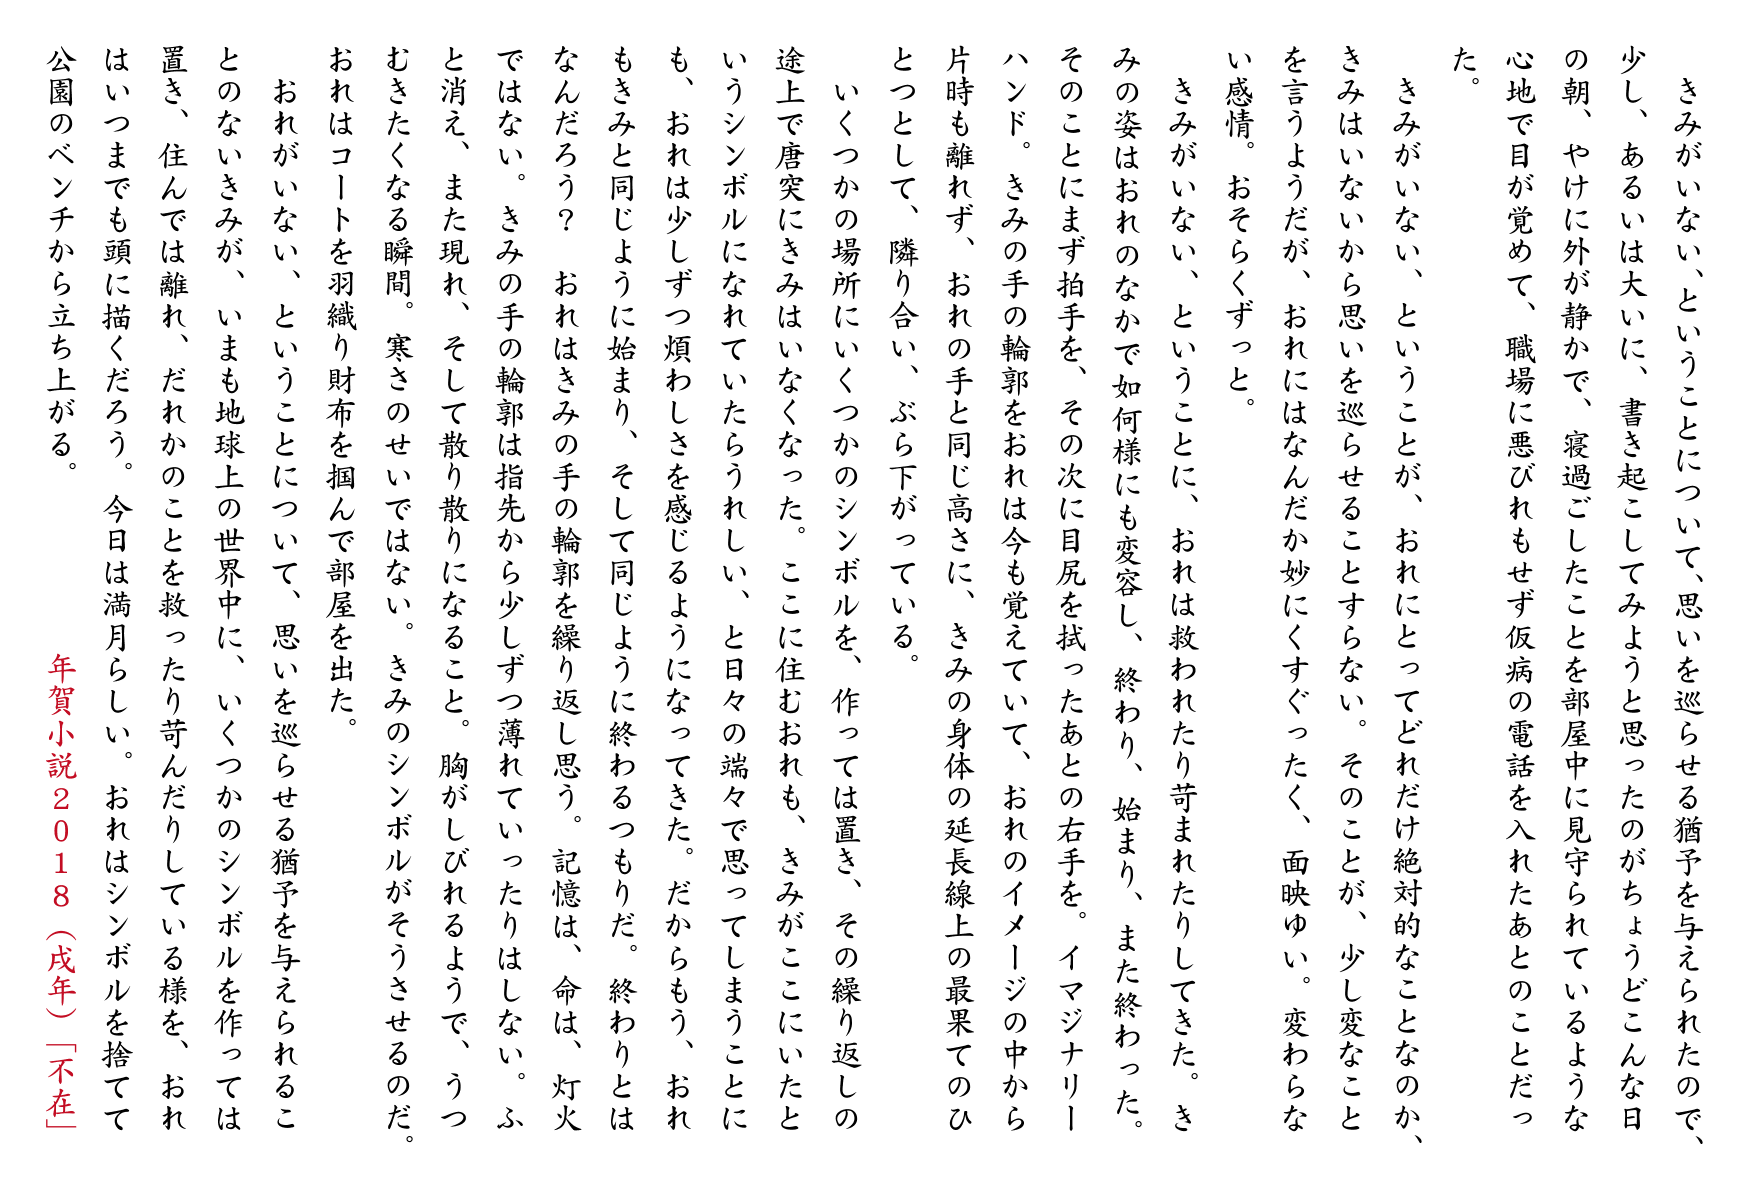 きみがいない、ということについて、思いを巡らせる猶予を与えられたので、
少し、あるいは大いに、書き起こしてみようと思ったのがちょうどこんな日
の朝、やけに外が静かで、寝過ごしたことを部屋中に見守られているような
心地で目が覚めて、職場に悪びれもせず仮病の電話を入れたあとのことだっ
た。
きみがいない、ということが、おれにとってどれだけ絶対的なことなのか、
きみはいないから思いを巡らせることすらない。そのことが、少し変なこと
を言うようだが、おれにはなんだか妙にくすぐったく、面映ゆい。変わらな
い感情。おそらくずっと。
きみがいない、ということに、おれは救われたり苛まれたりしてきた。き
みの姿はおれのなかで如何様にも変容し、終わり、始まり、また終わった。
そのことにまず拍手を、その次に目尻を拭ったあとの右手を。イマジナリー
ハンド。きみの手の輪郭をおれは今も覚えていて、おれのイメージの中から
片時も離れず、おれの手と同じ高さに、きみの身体の延長線上の最果てのひ
とつとして、隣り合い、ぶら下がっている。
いくつかの場所にいくつかのシンボルを、作っては置き、その繰り返しの
途上で唐突にきみはいなくなった。ここに住むおれも、きみがここにいたと
いうシンボルになれていたらうれしい、と日々の端々で思ってしまうことに
も、おれは少しずつ煩わしさを感じるようになってきた。だからもう、おれ
もきみと同じように始まり、そして同じように終わるつもりだ。終わりとは
なんだろう？　おれはきみの手の輪郭を繰り返し思う。記憶は、命は、灯火
ではない。きみの手の輪郭は指先から少しずつ薄れていったりはしない。ふ
と消え、また現れ、そして散り散りになること。胸がしびれるようで、うつ
むきたくなる瞬間。寒さのせいではない。きみのシンボルがそうさせるのだ。
おれはコートを羽織り財布を掴んで部屋を出た。
おれがいない、ということについて、思いを巡らせる猶予を与えられるこ
とのないきみが、いまも地球上の世界中に、いくつかのシンボルを作っては
置き、住んでは離れ、だれかのことを救ったり苛んだりしている様を、おれ
はいつまでも頭に描くだろう。今日は満月らしい。おれはシンボルを捨てて
公園のベンチから立ち上がる。
年賀小説２０１８（戌年）「不在」